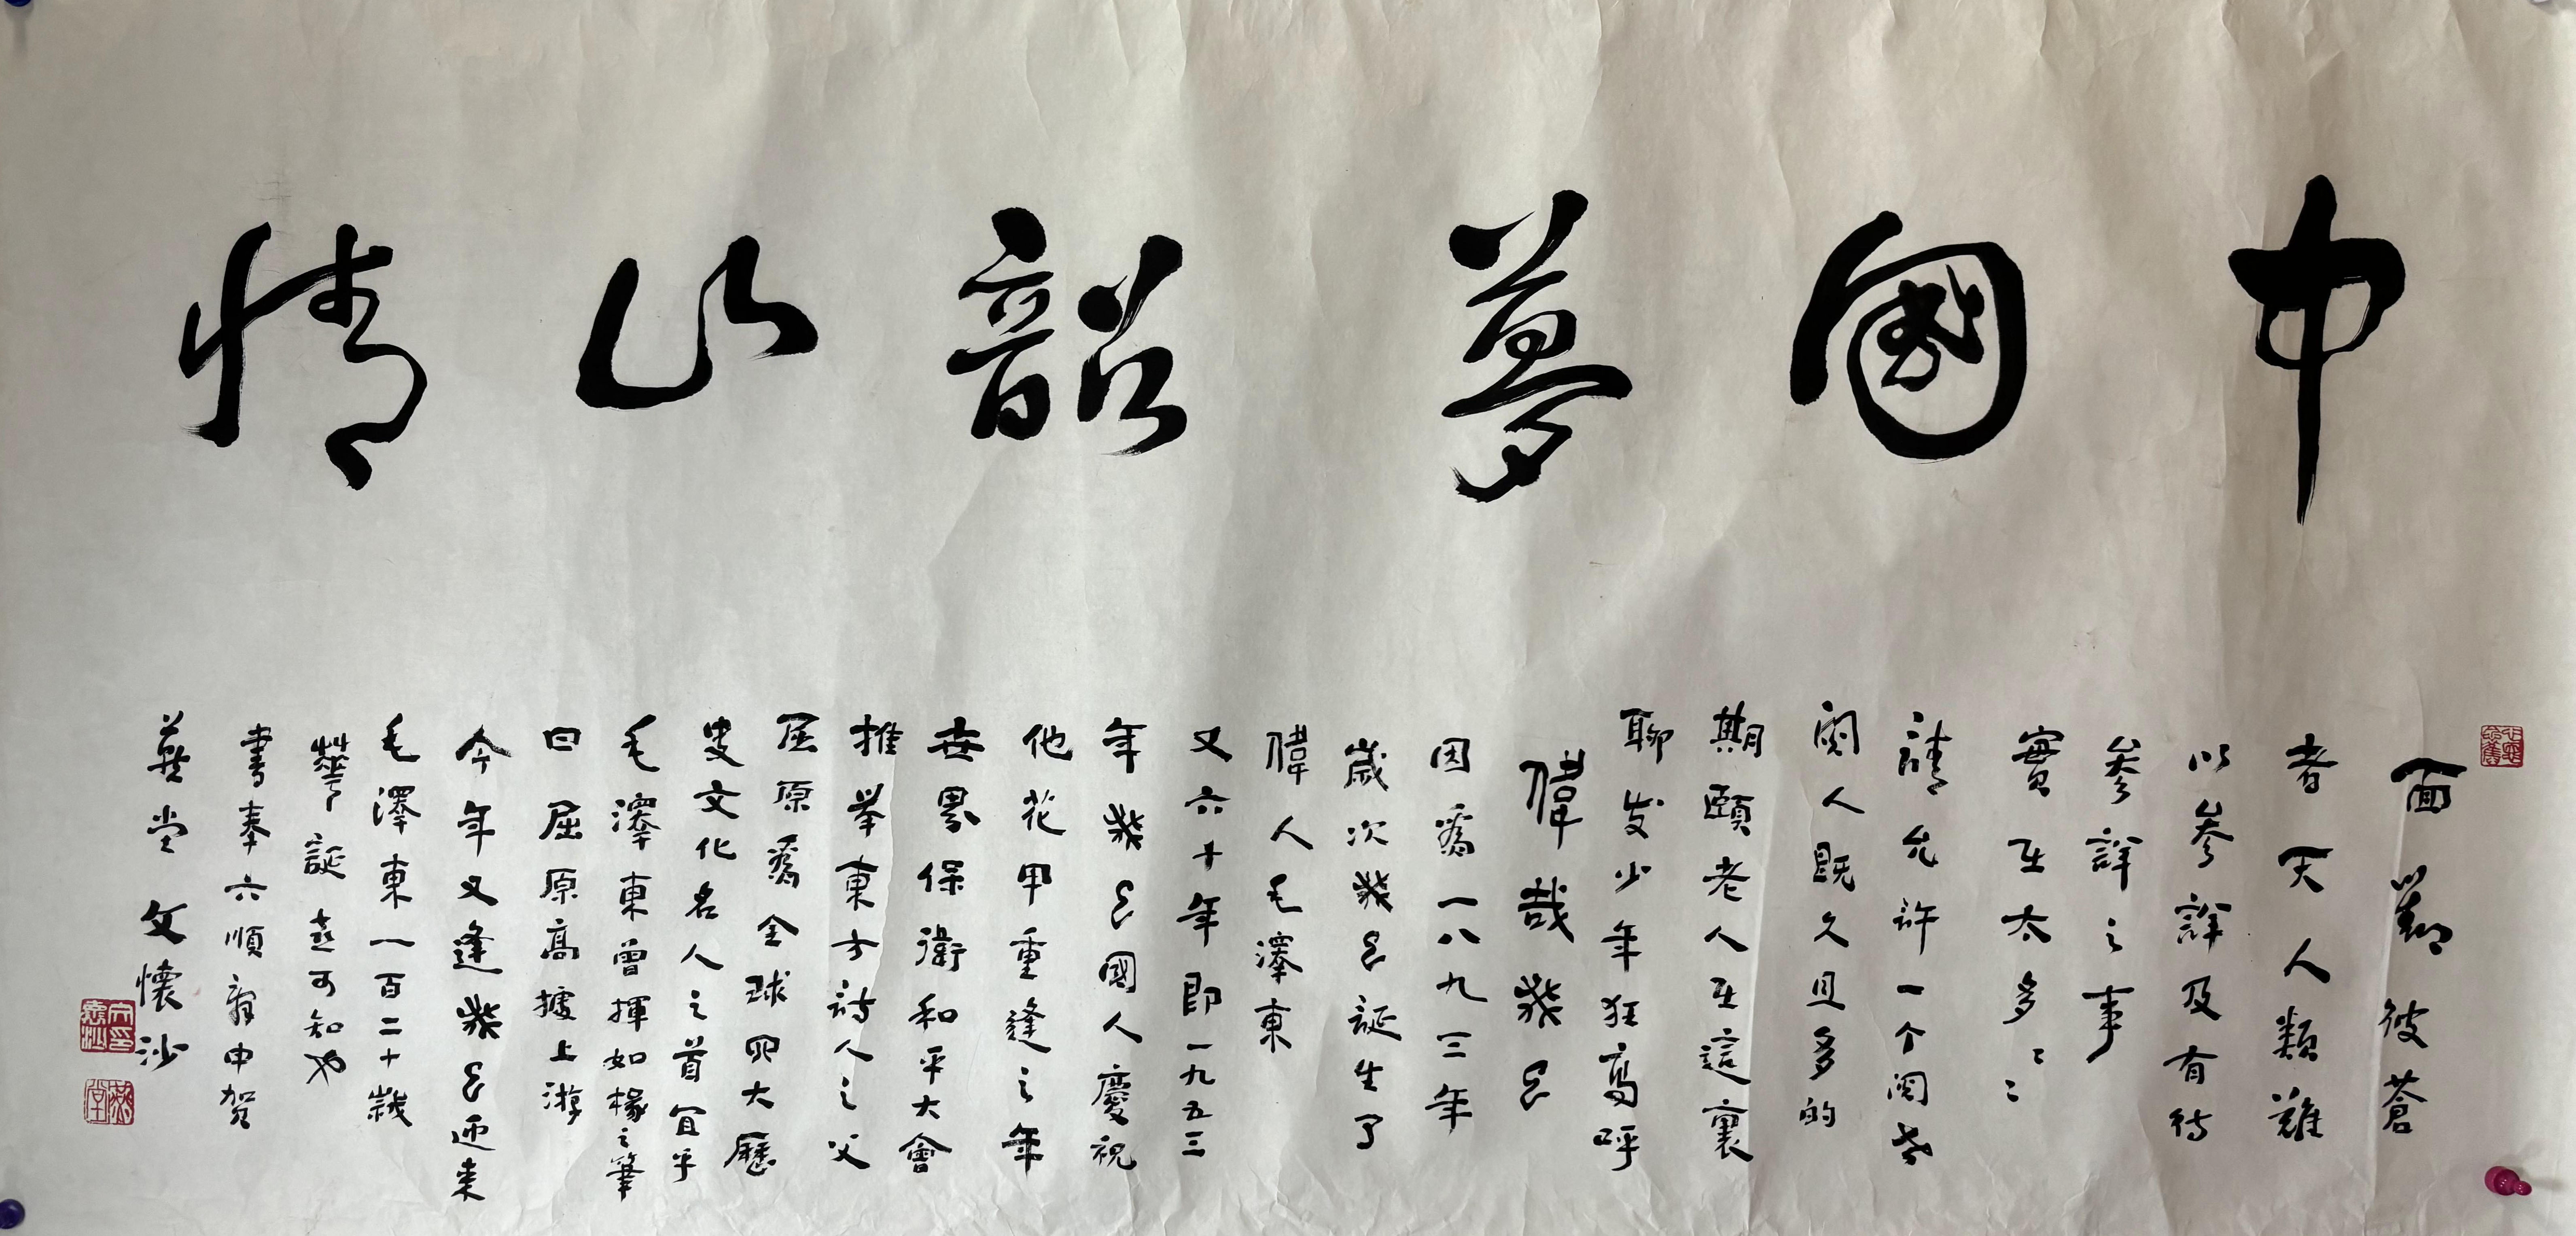 中國夢韶山情
面對彼蒼
者天人類難
以參詳及有待
參詳之事
實在太多
請允許一个閱世
閱人既久且多的
期頤老人在這裏
聊发少年狂高呼
偉哉癸巳
因爲一八九三年
歲次癸巳誕生了
偉人毛澤東
又六十年即一九五三
年癸巳國人慶祝
他花甲重逢之年
世界保衛和平大會
推举東方詩人之父
屈原爲全球四大歷
史文化名人之首宜乎
毛澤東曾揮如椽之筆
曰屈原高據上游
今年又逢癸巳迎来
毛澤東一百二十歲
華誕喜可知也
書奉六順齋申賀
燕堂 文懷沙
文懷沙
燕堂